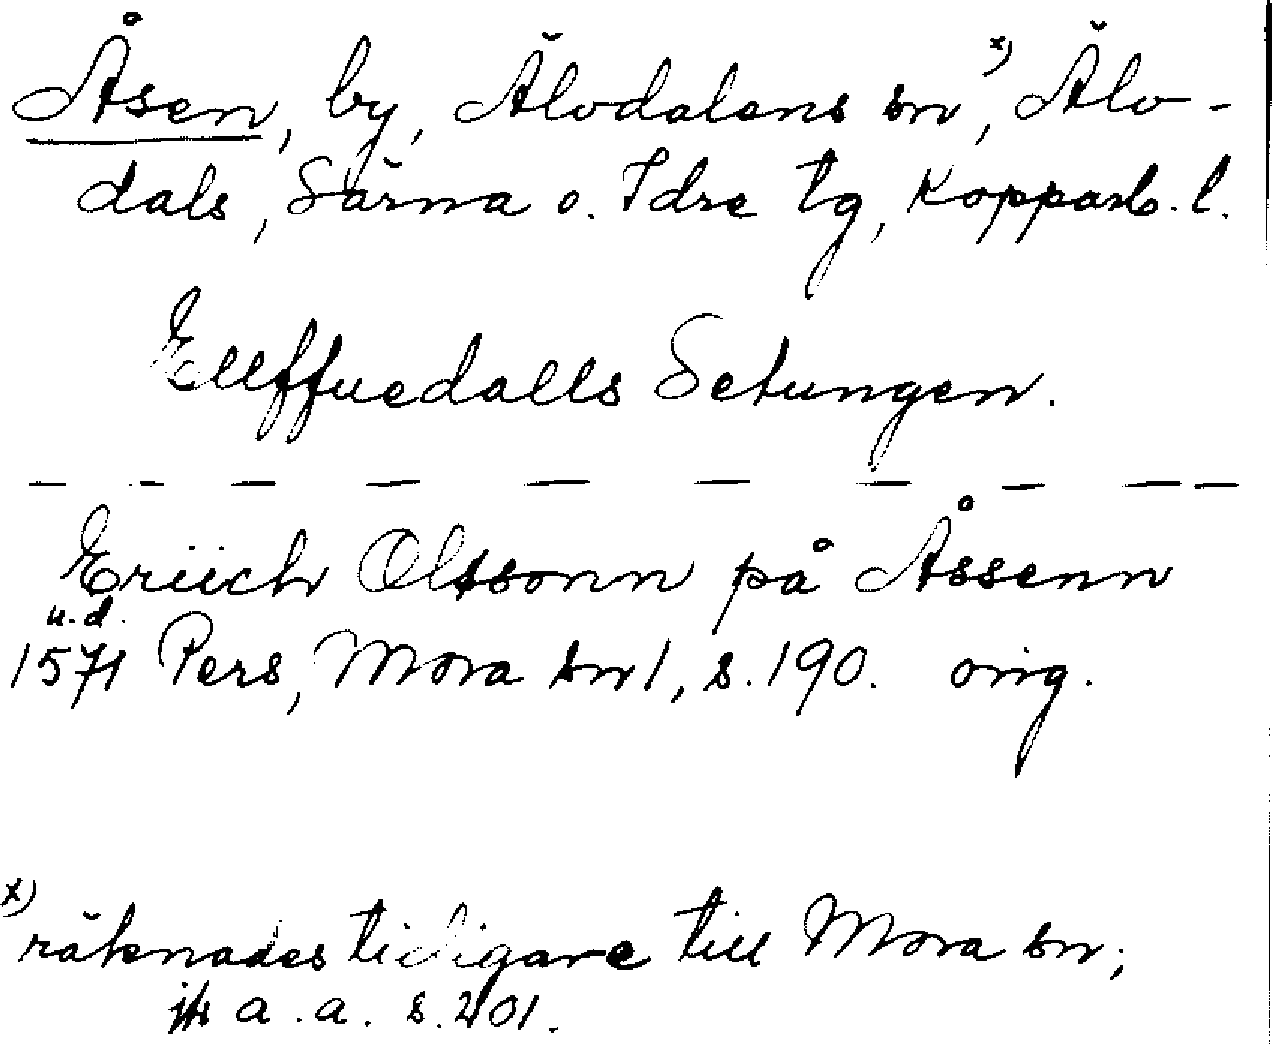 Åsen, by, Älvdalens sn x), Älv-
dals, Särna o. Idre tg, Kopparb. l.
Ellffuedalls Setungen.
— — — — — — — — — —
Eriich Olssonn på Åssenn
u.d.
1571 Pers, Mora sn 1, s. 190. orig.
x) räknades tidigare till Mora sn;
jfr a. a. s. 201.